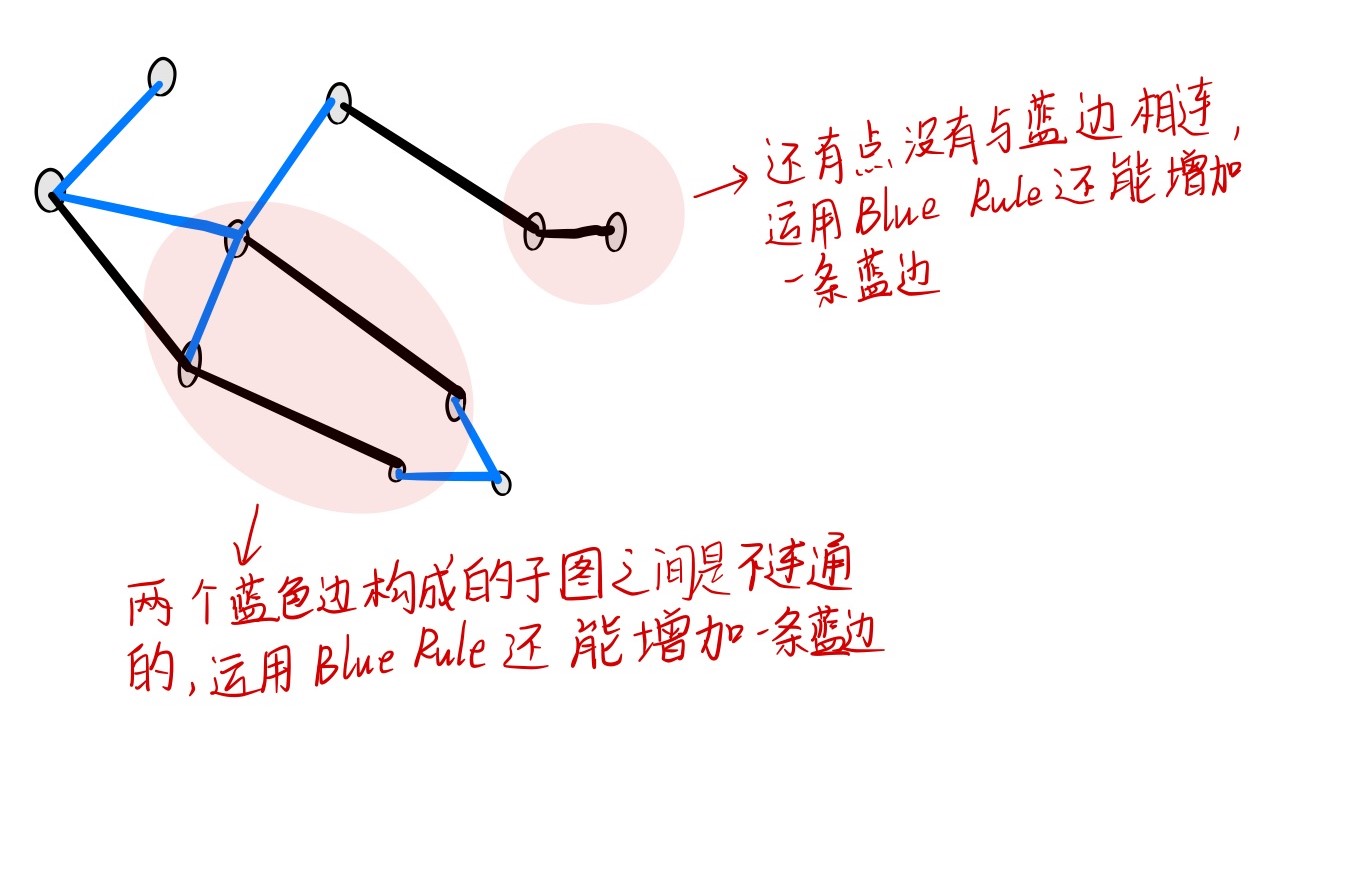 还有点没有与蓝边相连,
运用Blue Rule还能增加
一条蓝边
两个蓝色边构成的子图之间是不连通
的,运用Blue Rule还能增加一条蓝边